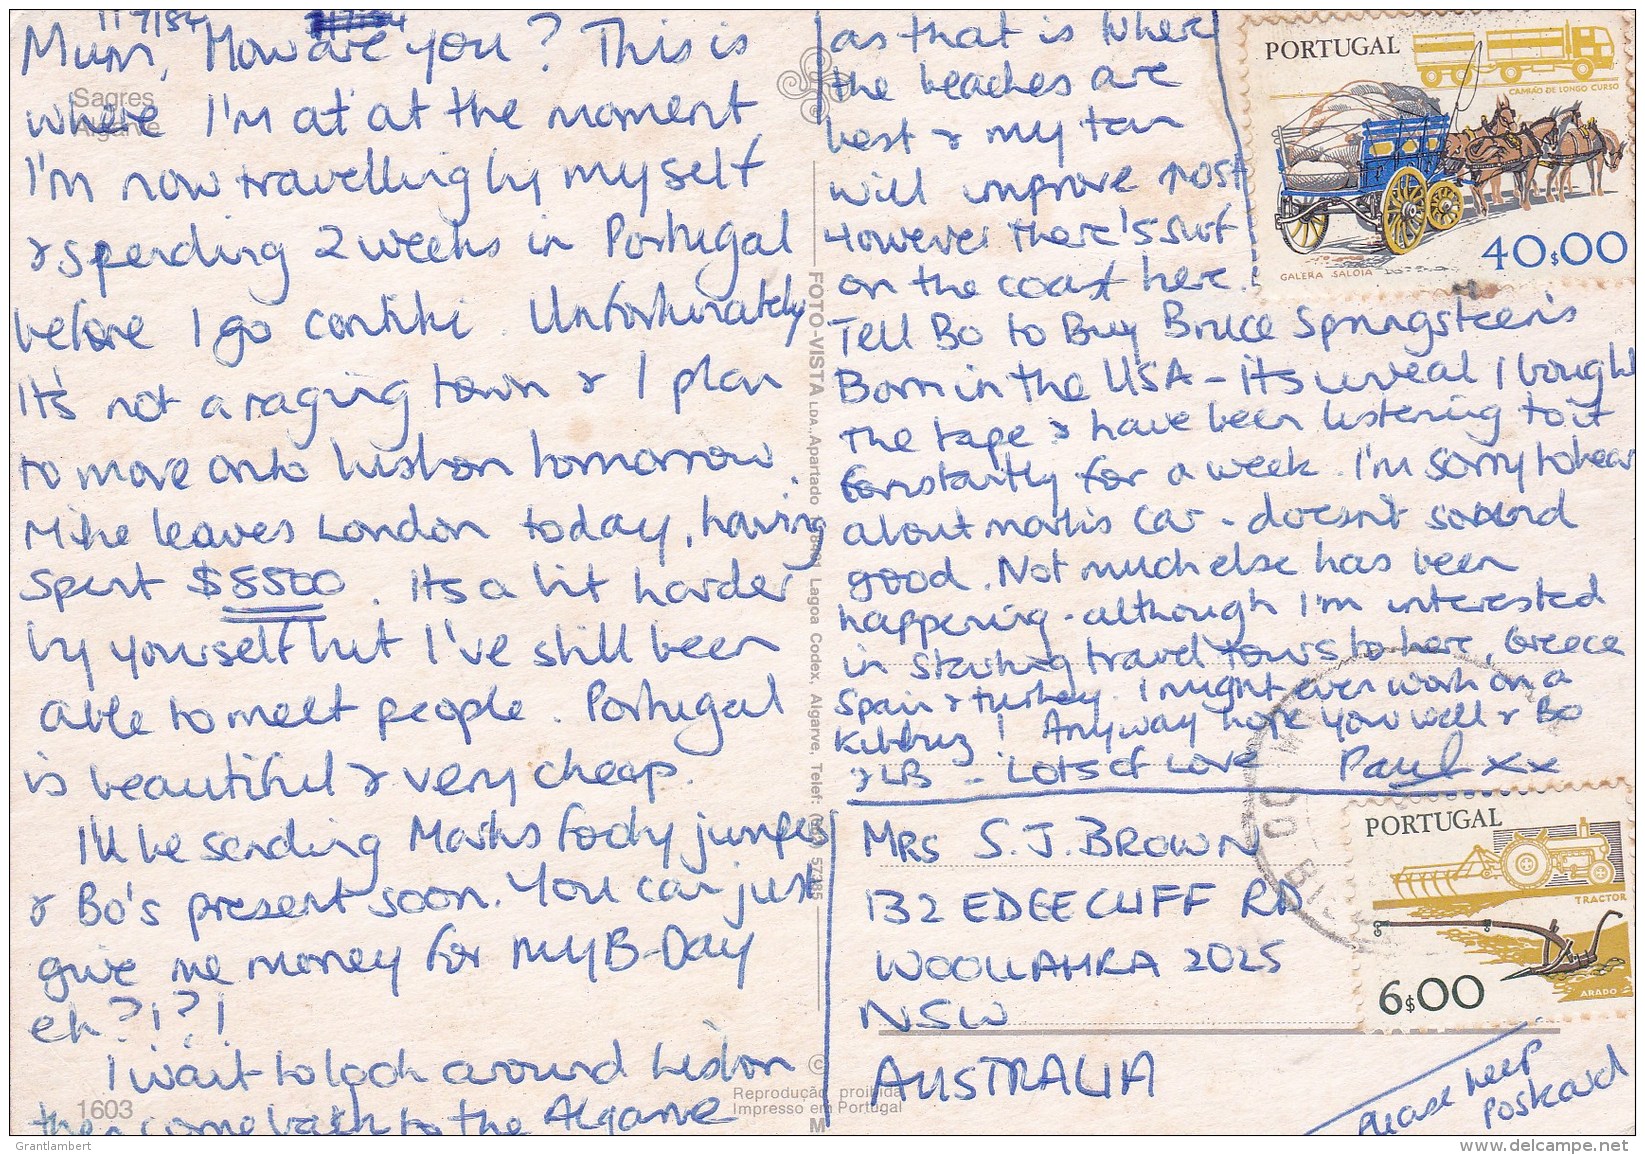 11/7/84
Mum, How are you? This is
where I'm at at the moment
I'm now travelling by myself
& spending 2 weeks in Portugal
before I go contiki. Unfortunately
It's not a raging town & I plan
to move onto Lisbon tomorrow.
Mike leaves London today, having
spent $5500. Its a bit harder
by yourself but I've still been
able to meet people. Portugal
is beautiful & very cheap.
I'll be sending Marks footy jumper
& Bo's present soon. You can just
give me money for my B-Day
eh?!?!
I want to look around Lisbon
then come back to the Algarve
as that is where
the beaches are
best & my tan
will improve most
However there's surf
on the coast here.
Tell Bo to Buy Bruce Springsteen's
Born in the USA - its unreal I bought
the tape & have been listening to it
constantly for a week. I'm sorry to hear
about marks car - doesn't sound
good. Not much else has been
happening - although I'm interested
in starting travel tours to here, Greece
Spain & turkey. I might even work on a
Kibbutz! Anyway hope your well & Bo
& LB - Lots of Love Paul xx
MRS S.J. BROWN
132 EDGECLIFF RD
WOOLLAHRA 2025
NSW
AUSTRALIA
Please keep
postcard
Sagres
Algarve
FOTO-VISTA LDA., Apartado Lagoa Codex, Algarve, Telef: 57385
1603
©
Reprodução proibida
Impresso em Portugal
M
PORTUGAL
CAMIÃO DE LONGO CURSO
GALERA SALOIA
40$00
PORTUGAL
TRACTOR
ARADO
6$00
Grantlambert
www.delcampe.net